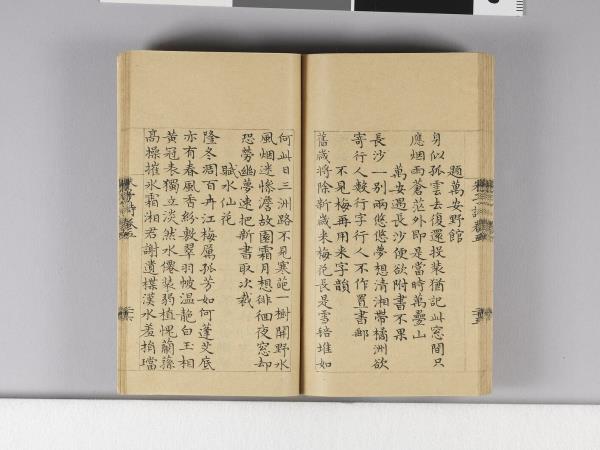 題萬安野館
身似孤雲去復還投裝猶記此窓間只
應烟雨蒼茫外即是當時萬疊山
萬安遇長沙便欲附書不果
長沙一别兩悠悠夢想清湘帶橘洲欲
寄行人數行字行人不作置書郵
不見梅再用來字韻
舊歲將除新歲来梅花長是雪毰堆如
何此日三洲路不見寒葩一樹開野水
風烟迷慘澹故園霜月想徘徊夜窓却
恐勞幽夢速把新書取次裁
賦水仙花
隆冬凋百卉江梅厲孤芳如何蓬艾底
亦有春風香紛敷翠羽帔温艶白玉相
黄冠表獨立淡然水僊裝弱植愧蘭蓀
高操摧氷霜湘君謝遺褋漢水羞捐璫